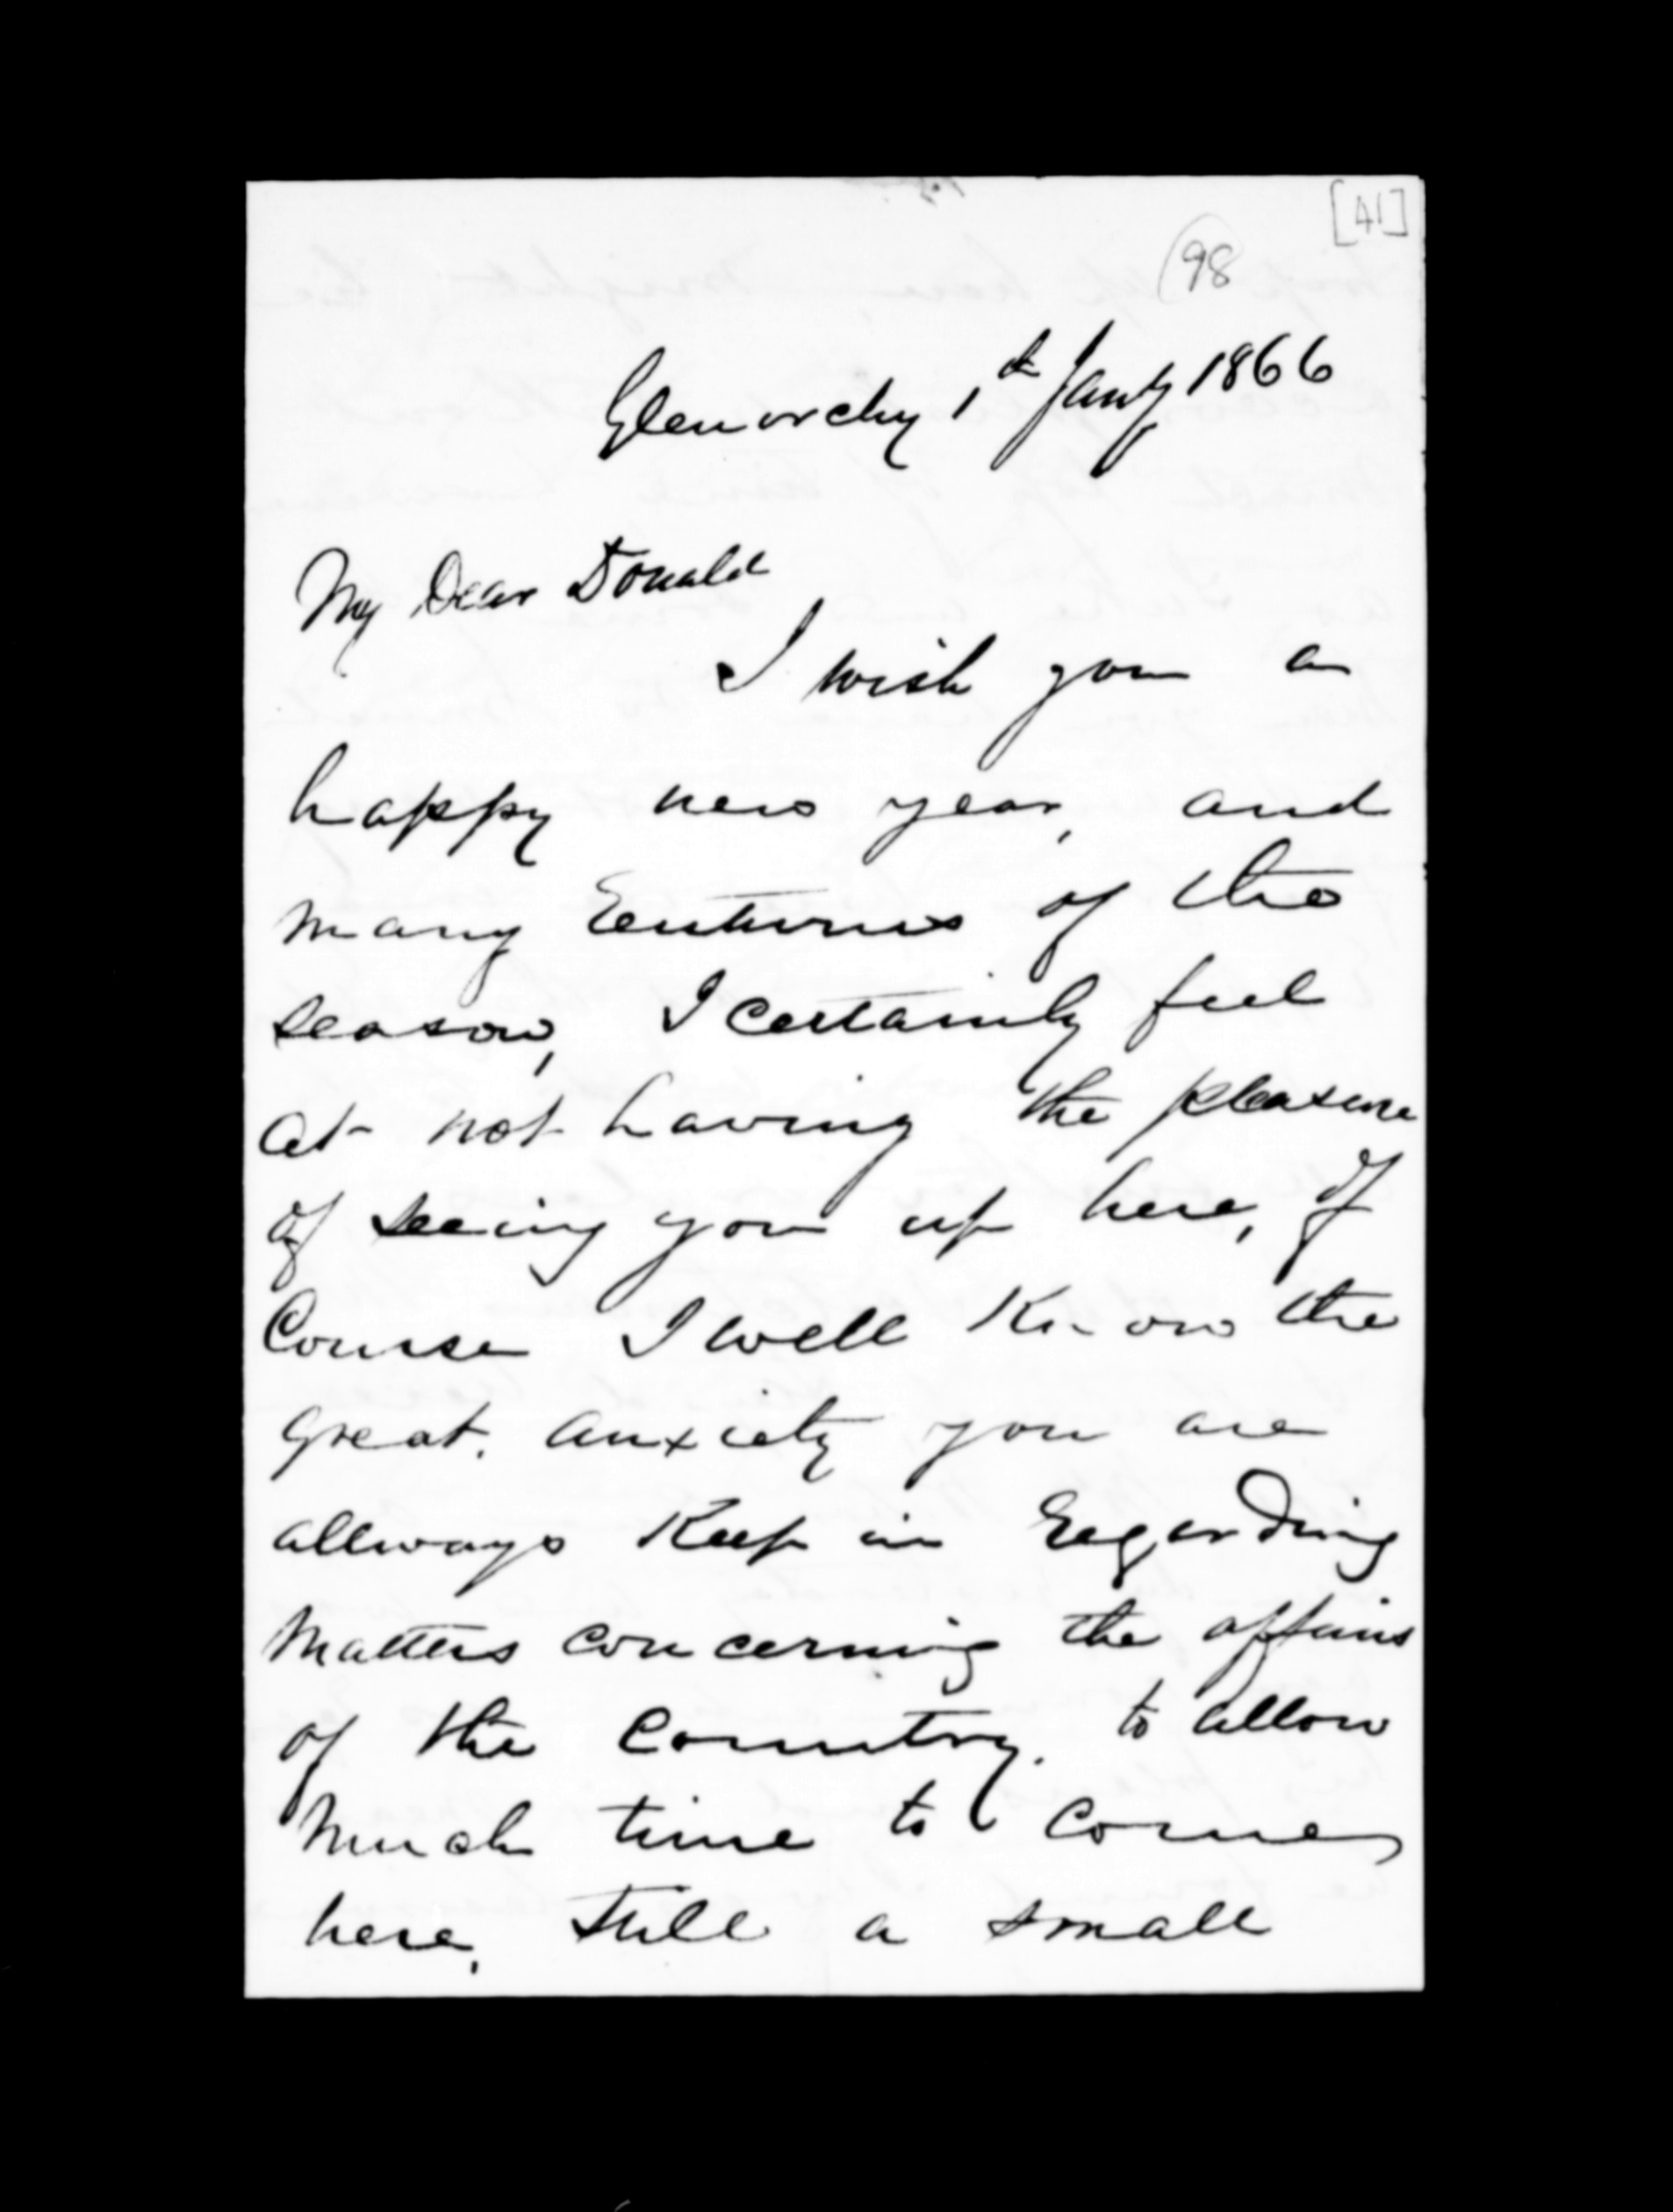 [41]
98
Glenorchy 1st Jany 1866
My Dear Donald
I wish you a
happy new year, and
many Returns of the
season, I certainly feel
at not having the pleasure
of seeing you up here, of
Course I well Know the
great. anxiety you are
allways Keep in Regarding
Matters concerning the affairs
of the Country. to allow
Much time to Come
here, still a small